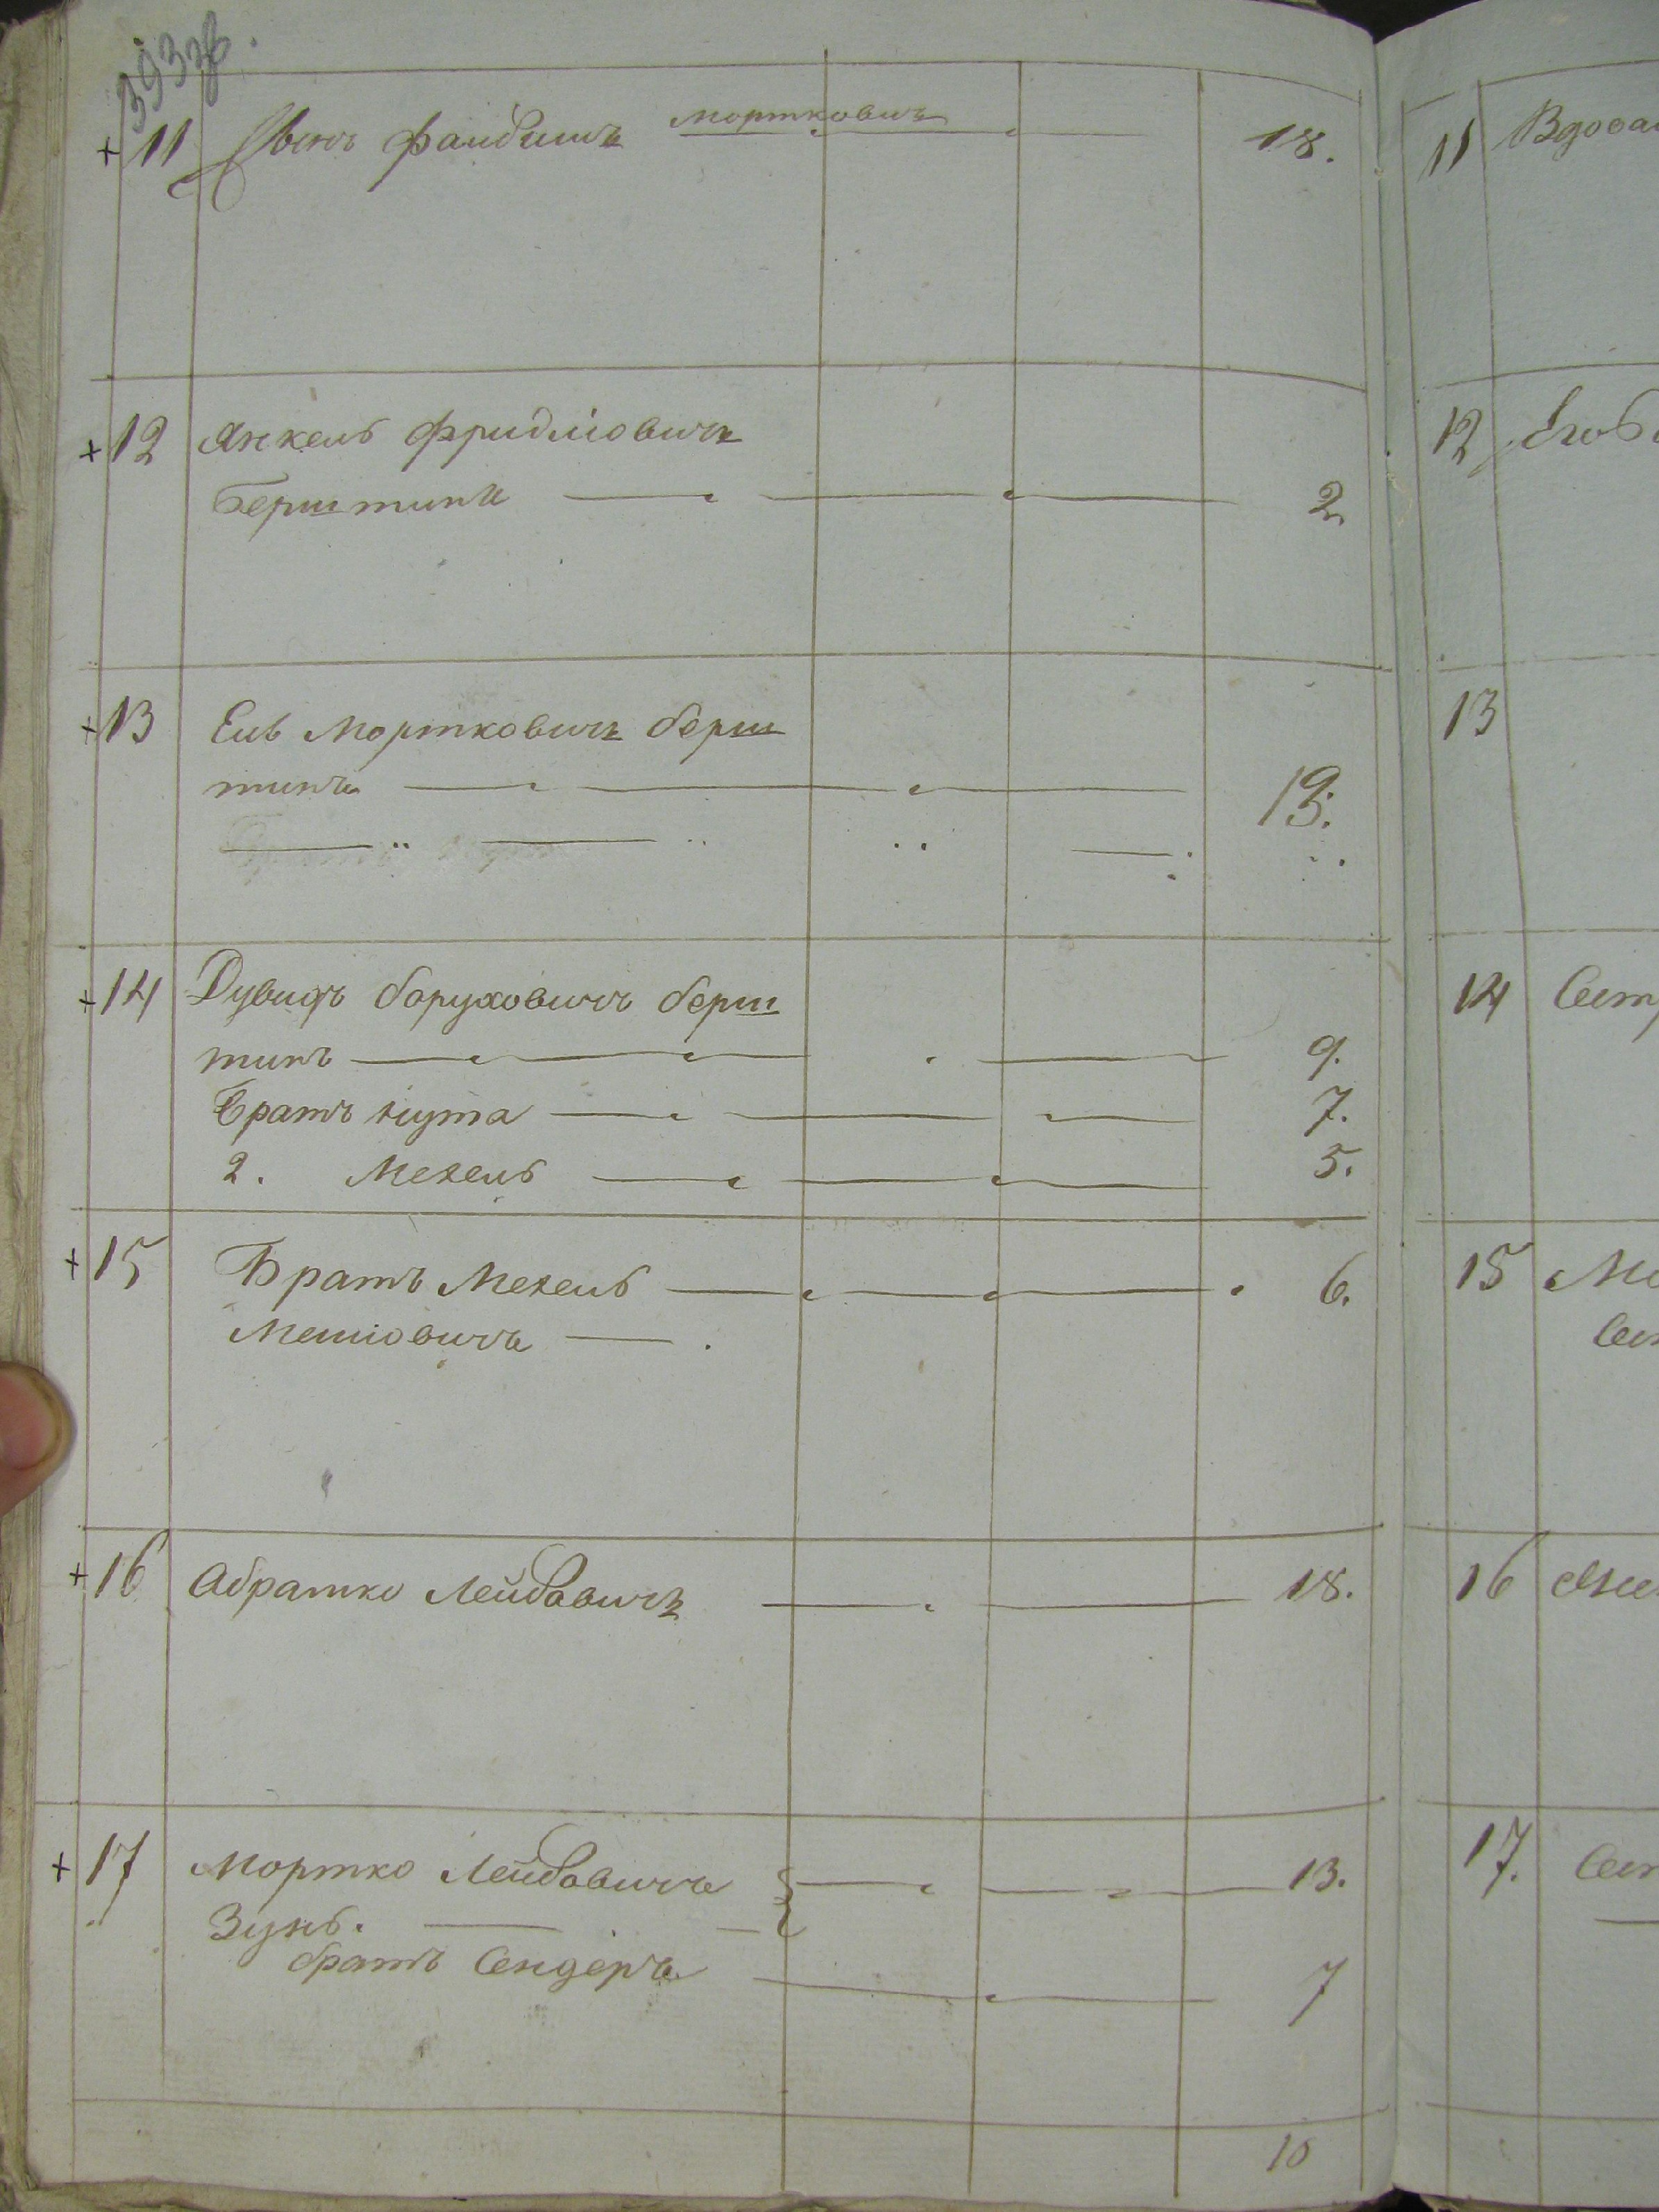 393 об.
+ 11 Фаибишъ Мортковичъ 18.
+ 12 Янкель Фридліовичъ
Берштинъ 2
+ 13 Ель Мортковичъ берш
тинъ 13.
+ 14 Дувидъ боруховичъ берш
тинъ 9.
Братъ нута 7.
2. Мехель 5.
+ 15 Братъ Мехель 6.
Мешіовичъ
+ 16 Абрамко Лейбовичъ 18.
+ 17 Мортко Лейбовичъ 13.
Зунь.
братъ Сендеръ 7
10
11 Вдова
12
13
14 Сест
15
16
17.